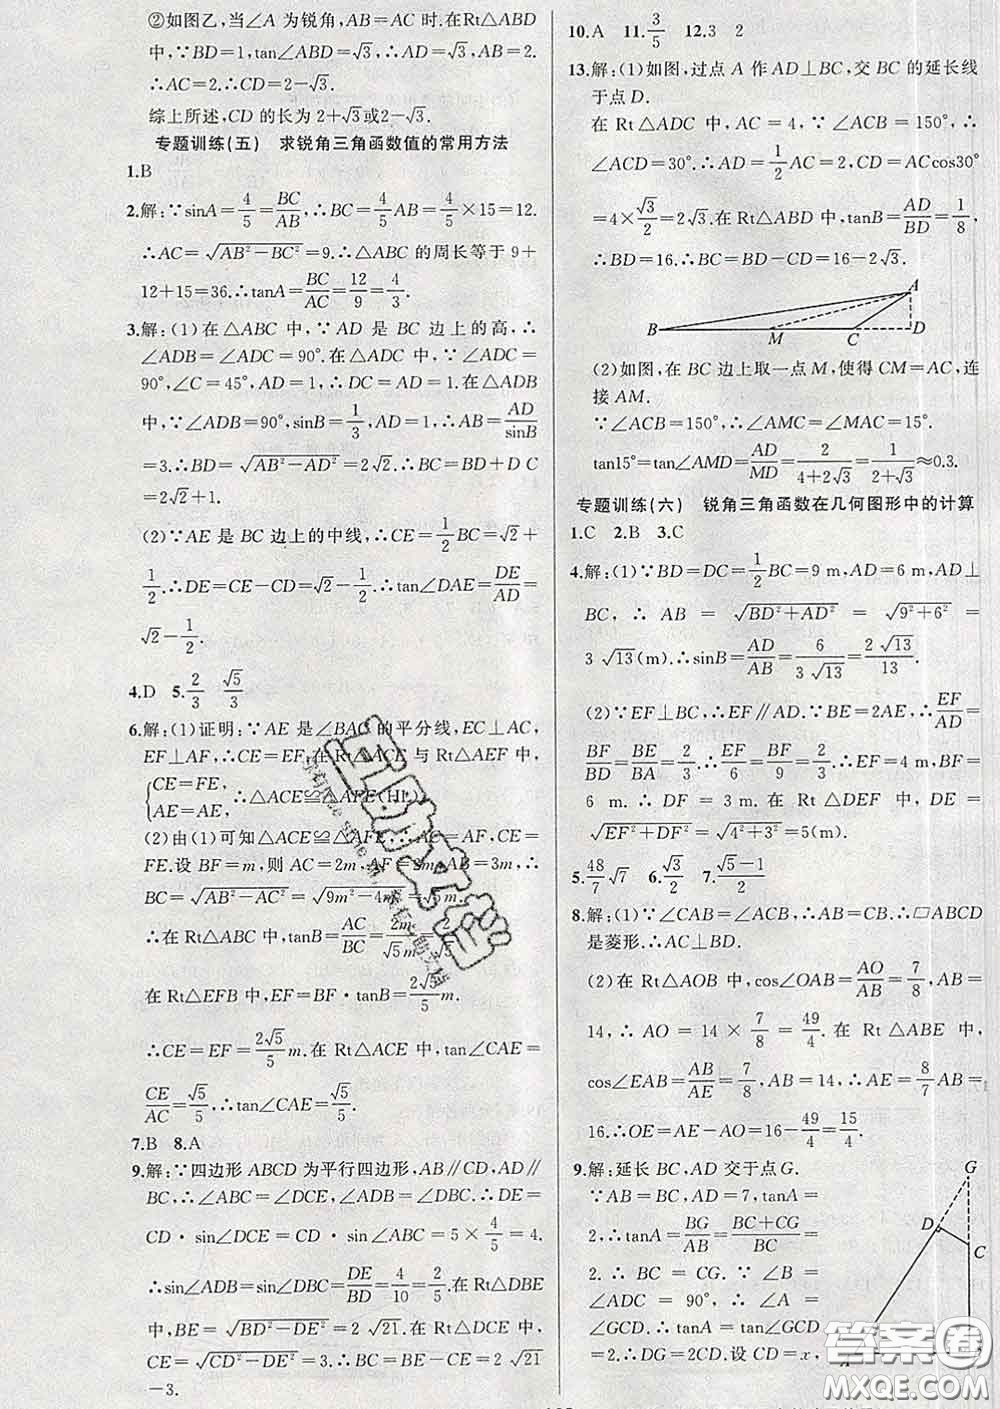 ②如图乙,当∠A 为锐角,AB=AC 时.在Rt△ABD
中,∵BD=1,tan∠BAD=√3,∴AD=√3,AB=2.
∴AC=2.∴CD=2-√3.
综上所述,CD 的长为 2+√3或2-√3.
专题训练(五) 求锐角三角函数值的常用方法
1.B
2.解:∵sinA=4/5=BC/AB,∴BC=4/5AB=4/5×15=12.
∴AC=√(AB²-BC²)=9.∴△ABC 的周长等于 9+
12+15=36.∴tanA=BC/AC=12/9=4/3.
3.解:(1)在△ABC 中,∵AD 是 BC 边上的高,∴
∠ADB=∠ADC=90°.在△ADC 中,∵∠ADC=
90°,∠C=45°,AD=1,∴DC=AD=1.在△ADB
中,∵∠ADB=90°,sinB=1/3,AD=1,∴AB=AD/sinB
=3.∴BD=√(AB²-AD²)=2√2.∴BC=BD+D C
=2√2+1.
(2)∵AE 是 BC 边上的中线,∴CE=1/2BC=√2+
1/2.∴DE=CE-CD=√2-1/2.∴tan∠DAE=DE/AD=
√2-1/2.
4.D 5.2/3 √5/3
6.解:(1)证明:∵AE 是∠BAC 的平分线,EC⊥AC,
EF⊥AF,∴CE=EF,在 Rt△ACE 与 Rt△AEF 中,
{CE=FE,
AE=AE, ∴△ACE≌△AFE(HL).
(2)由(1)可知△ACE≌△AFE,∴AC=AF,CE=
FE.设 BF=m,则 AC=2m,AF=2m,AB=3m,∴
BC=√(AB²-AC²)=√(9m²-4m²)=√5m.
∴在 Rt△ABC 中,tanB=AC/BC=2m/√5m=2/√5.
在 Rt△EFB 中,EF=BF·tanB=2√5/5m.
∴CE=EF=2√5/5m.在 Rt△ACE 中,tan∠CAE=
CE/AC=√5/5.∴tan∠CAE=√5/5.
7.B 8.A
9.解:∵四边形 ABCD 为平行四边形,AB∥CD,AD∥
BC,∴∠ABC=∠DCE,∠ADB=∠DBC.∴DE=
CD·sin∠DCE=CD·sin∠ABC=5×4/5=4.
∴sin∠ADB=sin∠DBC=DE/BD=4/10=2/5.在 Rt△DBE
中,BE=√(BD²-DE²)=2 √21.在 Rt△DCE 中,
CE=√(CD²-DE²)=3.∴BC=BE-CE=2 √21
-3.
10.A 11.3/5 12.3 2
13.解:(1)如图,过点 A 作 AD⊥BC,交 BC 的延长线
于点 D.
在 Rt△ADC 中,AC=4,∵∠ACB=150°,∴
∠ACD=30°.∴AD=1/2AC=2,CD=ACcos30°
=4×√3/2=2√3.在 Rt△ABD 中,tanB=AD/BD=1/8,
∴BD=16.∴BC=BD-CD=16-2√3.
A
B M C D
(2)如图,在 BC 边上取一点 M,使得 CM=AC,连
接 AM.
∵∠ACB=150°,∴∠AMC=∠MAC=15°.
tan15°=tan∠AMD=AD/MD=2/(4+2√3)=1/(2+√3)≈0.3.
专题训练(六) 锐角三角函数在几何图形中的计算
1.C 2.B 3.C
4.解:(1)∵BD=DC=1/2BC=9 m,AD=6 m,AD⊥
BC,∴AB=√(BD²+AD²)=√(9²+6²)=
3 √13(m).∴sinB=AD/AB=6/(3√13)=2√13/13.
(2)∵EF⊥BC,∴EF∥AD.∵BE=2AE,∴EF/AD=
BF/BD=BE/BA=2/3.∴EF/6=BF/9=2/3.∴EF=4 m,BF=
6 m.∴DF=3 m.在 Rt△DEF 中,DE=
√(EF²+DF²)=√(4²+3²)=5(m).
5.48/7√7 6.√3/2 7.(√5-1)/2
8.解:(1)∵∠CAB=∠ACB,∴AB=CB.∴▱ABCD
是菱形.∴AC⊥BD.
(2)在 Rt△AOB 中,cos∠OAB=AO/AB=7/8,AB=
14,∴AO=14×7/8=49/4.在 Rt△ABE 中,
cos∠EAB=AB/AE=7/8,AB=14,∴AE=8/7AB=
16.∴OE=AE-AO=16-49/4=15/4.
9.解:延长 BC,AD 交于点 G.
∵AB=BC,AD=7,tanA=
2,∴tanA=BG/AB=(BC+CG)/BC=
2.∴BC=CG.∵∠B=
∠ADC=90°,∴∠A=
∠GCD.∴tanA=tan∠GCD
=2.∴DG=2CD.设 CD=x,
G
D
C
答案圈
MXQE.COM